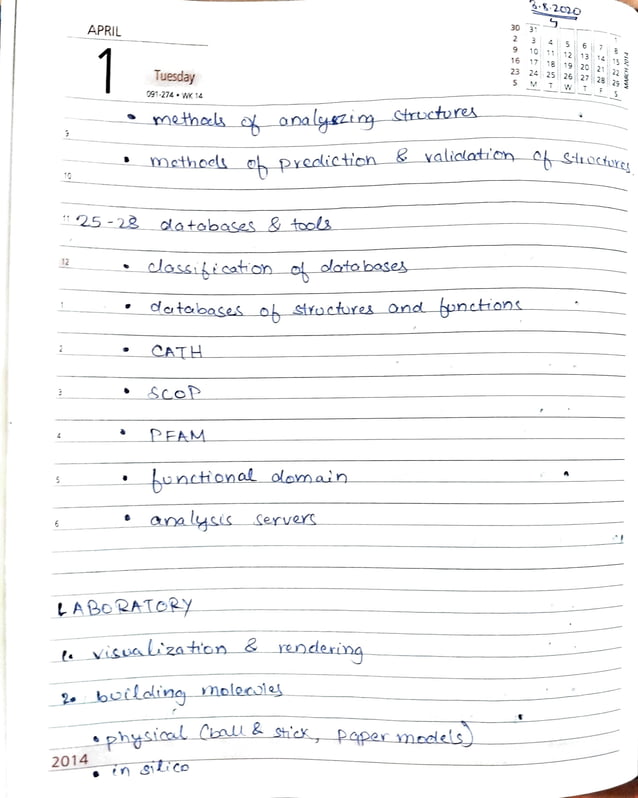 3.8.2020
APRIL
1
Tuesday
091-274 • WK 14
30 31 1
2 3 4 5 6 7 8
9 10 11 12 13 14 15
16 17 18 19 20 21 22
23 24 25 26 27 28 29
S M T W T F S
MARCH 2014
• methods of analyzing structures
9
• methods of prediction & validation of structures
10
11 25-28 databases & tools
12 • classification of databases
1 • databases of structures and functions
2 • CATH
3 • SCOP
4 • PFAM
5 • functional domain
6 • analysis servers
LABORATORY
1. visualization & rendering
2. building molecules
• physical (ball & stick, paper models)
2014
• in silico